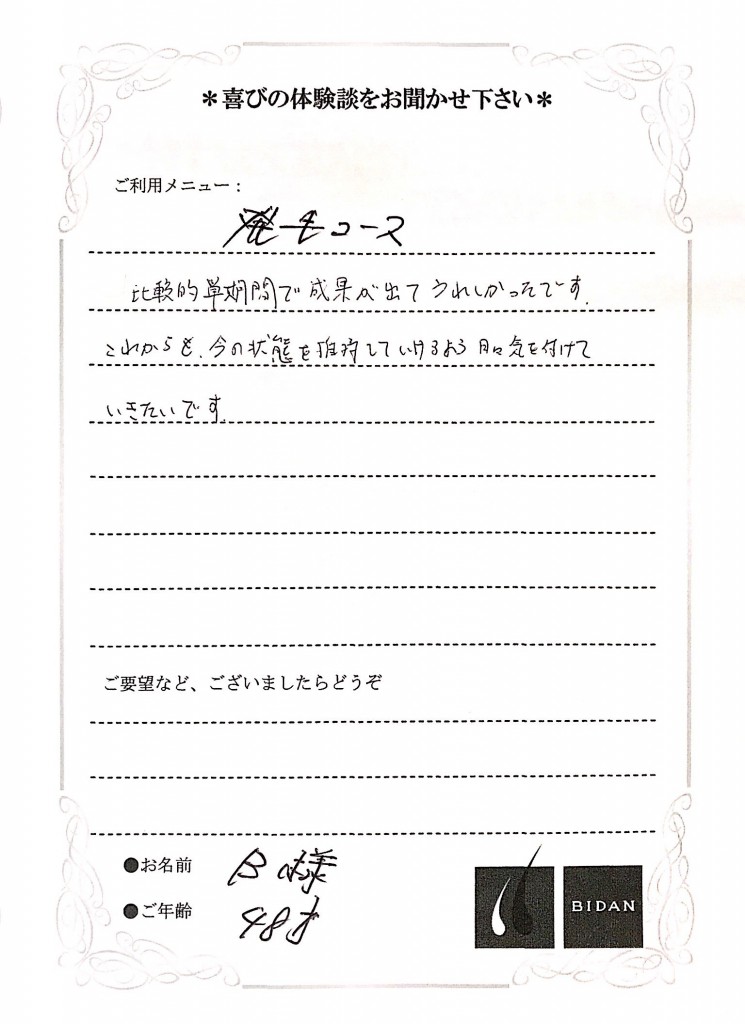 ＊喜びの体験談をお聞かせ下さい＊
ご利用メニュー：
発毛コース
比較的単期間で成果が出てうれしかったです.
これからも、今の状態を維持していけるよう日々気を付けて
いきたいです.
ご要望など、ございましたらどうぞ
●お名前 B 様
●ご年齢 48才
BIDAN